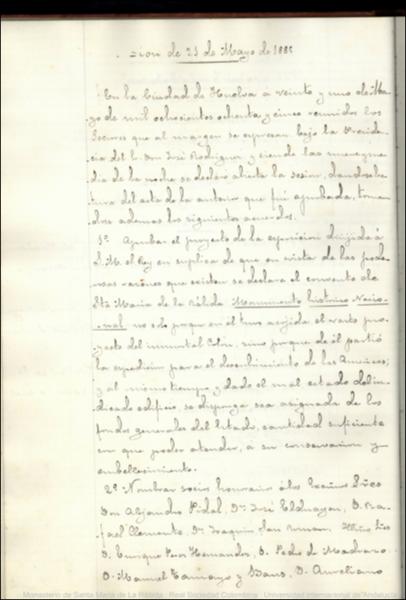 sion de 21 de Mayo de 1885
En la Ciudad de Huelva a veinte y uno de Ma-
yo de mil ochocientos ochenta y cinco reunidos los
Señores que al margen se expresan bajo la Presiden-
cia del Sr. Don José Rodriguez y siendo las nueve y me-
dia de la noche se declaró abierta la sesion, dandose lec-
tura del acta de la anterior que fué aprobada, toman-
dose ademas los siguientes acuerdos.
1º Aprobar el proyecto de la esposicion dirijida á
S. M. el Rey en suplica de que en vista de las pode-
rosas razones que existen se declare el convento de
Sta Maria de la Rábida Monumento histórico Naci-
onal, no solo porque en él tuvo acojida el vasto pro-
yecto del inmortal Colón, sino porque de él partió
la expedicion para el descubrimiento de las Americas;
y al mismo tiempo y dado el mal estado del in-
dicado edificio, se disponga sea asignada de los
fondos generales del Estado, cantidad suficiente
con que poder atender, a su conservacion y
embellecimiento.
2º Nombrar socios honorarios á los Excmos Sres
Don Alejandro Pidal, Dn José Elduayen, D. Ra-
fael Clemente, Dn Joaquin San Roman. Iltmos Sres
D. Enrique Hernandez, D. Pedro de Madrazo
D. Manuel Tamayo y Baus, D. Aureliano
Monasterio de Santa María de La Rábida Real Sociedad Colombina Universidad Internacional de Andalucía